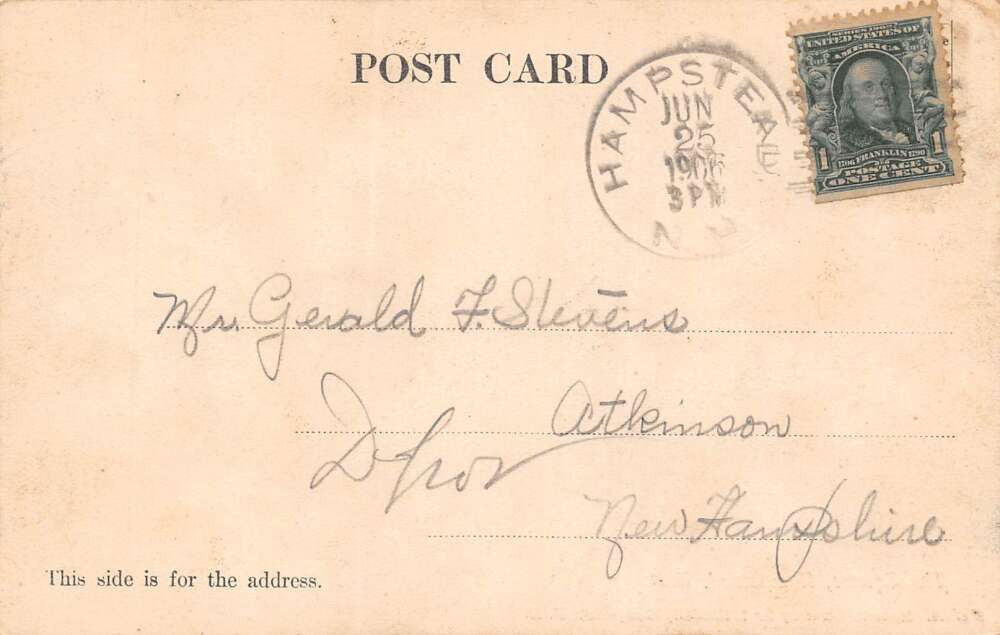 POST CARD
HAMPSTEAD
JUN
25
1906
3 PM
N
SERIES 1902
UNITED STATES OF
AMERICA
1 1706 FRANKLIN 1790 1
POSTAGE
ONE CENT
Mr. Gerald F. Stevens
Atkinson
Depot
New Hampshire
This side is for the address.